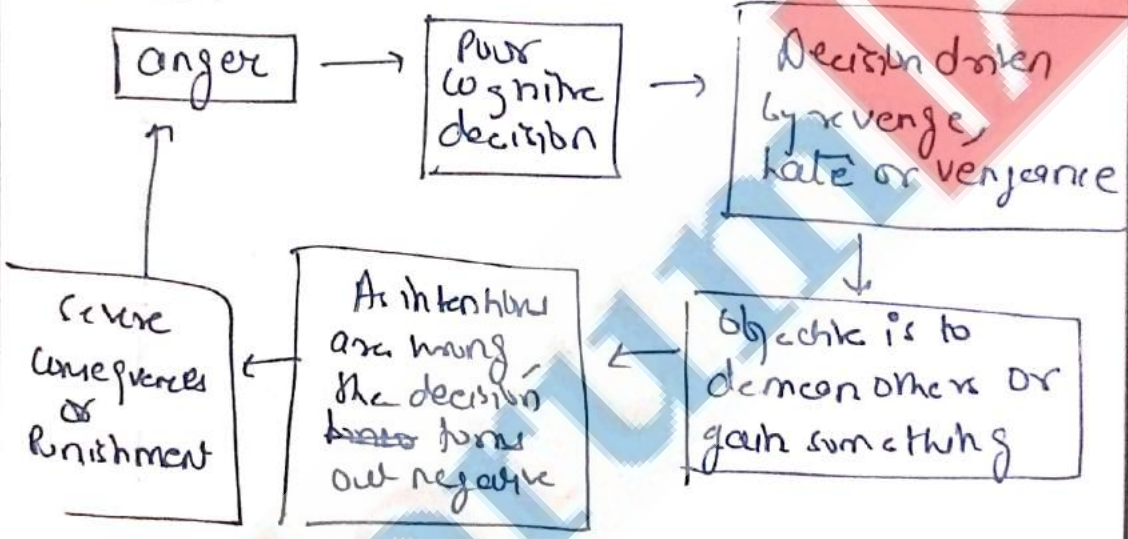 anger
Poor
Cognitive
decision
Decision driven
by revenge,
hate or vengeance
Objective is to
demean others or
gain something
As intentions
are wrong
the decision
turns
out negative
Severe
Consequences
or
Punishment